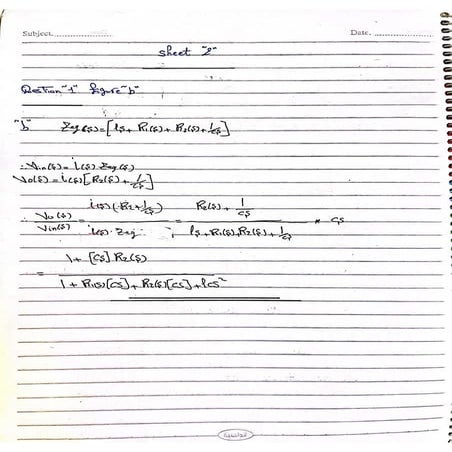 Subject.................... Date. ....................
sheet "2"
Question "1" figure "b"
"b" Zeq(s)=[ls+R1(s)+R2(s)+1/cs]
∴ Vin(s)=i(s) Zeq(s)
Vo(s)=i(s)[R2(s)+1/cs]
∴ Vo(s)/Vin(s) = i(s)(R2+1/cs)/i(s).Zeq = (R2(s)+1/cs)/(ls+R1(s)+R2(s)+1/cs) * cs
= (1+[cs]R2(s))/(1+R1(s)[cs]+R2(s)[cs]+lcs²)